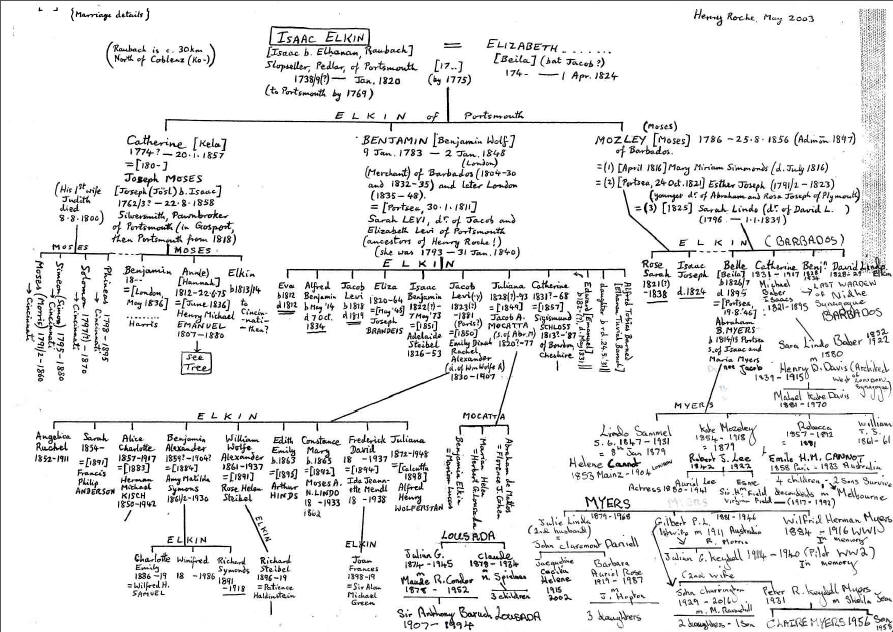 {Marriage details}
Henry Roche, May 2003
(Raubach is c. 30km
North of Coblenz (Ko-)
ISAAC ELKIN
[Isaac b. Elhanan, Raubach]
Slopseller, Pedlar, of Portsmouth
1738/9(?) — Jan. 1820
(to Portsmouth by 1769)
=
[17..]
(by 1775)
ELIZABETH .......
[Beila] (bat Jacob?)
174- — 1 Apr. 1824
ELKIN of Portsmouth
Catherine [Kela]
1774? — 20.1.1857
=[180-]
Joseph MOSES
[Joseph (Josl) b. Isaac]
1762/3? — 22.8.1858
Silversmith, Pawnbroker
of Portsmouth (in Gosport,
then Portsmouth from 1818)
(His 1st wife
Judith
died
8.8.1800)
BENJAMIN [Benjamin Wolf]
9 Jan. 1783 — 2 Jan. 1848
(London)
(Merchant) of Barbados (1804-30
and 1832-35) and later London
(1835-48).
= [Portsea, 30.1.1811]
Sarah LEVI, dr. of Jacob and
Elizabeth Levi of Portsmouth
(ancestors of Henry Roche!)
(she was 1793 — 31 Jan. 1840)
(Moses)
MOZLEY [Moses] 1786 — 25.8.1856 (Admon 1847)
of Barbados.
=(1) [April 1816] Mary Miriam Simmonds (d. July 1816)
=(2) [Portsea, 24 Oct. 1821] Esther Joseph (1791/2 — 1823)
(younger dr. of Abraham and Rosa Joseph of Plymouth)
=(3) [1825] Sarah Lindo (dr. of David L. )
(1796 — 1.1.1839)
MOSES
Moses (Morris) 1791/2 — 1860
→ Cincinnati
Simeon (Simon) 1795 — 1880
→ Cincinnati
Solomon (1797?) — 1876
→ Cincinnati
Phineas 1798 — 1895
→ Cincinnati
MOSES
Benjamin
18--
=[London,
May 1836]
........
Harris
Ann(e)
[Hannah]
1812-22.6.73
=[June 1836]
Henry Michael
EMANUEL
1807-1880
see
Tree
Elkin
b 1813/14
to
Cincin-
nati-
then?
ELKIN
Eva
b 1812
d 1812
Alfred
Benjamin
b May '14
d 7 Oct.
1834
Jacob
Levi
b 1818
d 1819
Eliza
1820-64
=[May '43]
Joseph
BRANDEIS
Isaac
Benjamin
1822(?)-
7 May '73
=[1851]
Adelaide
Steibel
1826-53
Jacob
Levi(y)
1823(?)
-1881
(Paris?)
=[1850]
Emily Dinah
Rachel
Alexander
(d. of Wm Wolfe A)
1830-1907
Juliana
1828(?)-93
=[1849]
Jacob A.
MOCATTA
(s. of Abr. M)
1820?-77
Catherine
1831?-68
=[1857]
Sigismund
SCHLOSS
1813?-'87
of Bowdon,
Cheshire
ELKIN (BARBADOS)
Rose
Sarah
1821(?)
-1838
Isaac
Joseph
d. 1824
Belle
[Beila]
b 1826/7
d 1895
=[Portsea,
19.8.46]
Abraham
B. MYERS
b 1814/15 Portsea
s. of Isaac and
Maria Myers
née Jacob
Catherine
1831-1917
Michael
Baber
Isaacs
1821-1895
Benjn
David Lindo Elkin
LAST WARDEN
of Nidhe
Synagogue
BARBADOS
Sara Lindo Baber
m 1880
Henry D. Davis (Architect
1839-1915
West London
Synagogue)
Mabel Kate Davis
1881-1970
ELKIN
Angelica
Rachel
1852-1911
Sarah
1854-
=[1891]
Francis
Philip
ANDERSON
Alice
Charlotte
1857-1917
=[1883]
Herman
Michael
KISCH
1850-1942
Benjamin
Alexander
1859?-1904?
=[1884]
Amy Matilda
Symons
1861/2-1930
William
Wolfe
Alexander
1861-1937
=[1891]
Rose Helen
Steibel
Edith
Emily
b. 1863
=[1895]
Arthur
HINDS
Constance
Mary
b. 1865
=[1892]
Moses A.
N. LINDO
18 -1933
1862
Frederick
David
18 -1937
=[1894]
Ida Jeann-
ette Mendl
18 -1938
Juliana
1872-1948
=[Calcutta
1898]
Alfred
Henry
WOLFERSTAN
MOCATTA
Benjamin Elkin
= Marian Lucas
Marian Helen
= Herbert G. Lousada
Abraham de Mattos
= Florence J. Cohen
MYERS
Lindo Sammel
5.6.1847-1931
= 8th Jan 1879
Helene Cannot
1853 Mainz-1904 London
Kate Mozeley
1854-1918
= 1879
Robert J. Lee
1842 1922
Auriel Lee
Actress 1880-1941
Rebecca
1857-1892
= 1881
Emile H.M. CANNOT
1858 Paris-1983 Australia
4 children - 2 Sons Survive
descendants in Melbourne
William
T. S.
1861-61
ELKIN
Charlotte
Emily
1886-19
=Wilfred H.
SAMUEL
Winifred
18 -1986
Richard
Symonds
1891
-1918
ELKIN
Richard
Steibel
1896-19
=Patience
Haldinstein
ELKIN
Joan
Frances
1898-19
=Sir Alan
Michael
Green
LOUSADA
Julian G.
1874-1945
m
Maude R. Condor
1878 - 1952
Claude
1879-1934
m. Spielman
3 children
Sir Anthony Baruch LOUSADA
1907 - 1994
MYERS
1879-1968
Julie Linda
(2nd husband)
John Claremont Daniell
Jacqueline
Cecilia
Helene
1915
2002
Barbara
Auriel Rose
1919-1987
m
J. Hopton
3 daughters
Gilbert P.L. 1881-1946
m 1911 Australia
R. Morris
Julian G. Keyball 1914-1940 (Pilot WW2)
In memory
2nd wife
John Charrington
1929-2016
m. M. Ravenhill
2 daughters - 1 Son
Wilfrid Herman Myers
1884 - 1916 WWI
In memory
Peter R. Keyball Myers
1931 m Sheila Jean
CLAIRE MYERS 1956